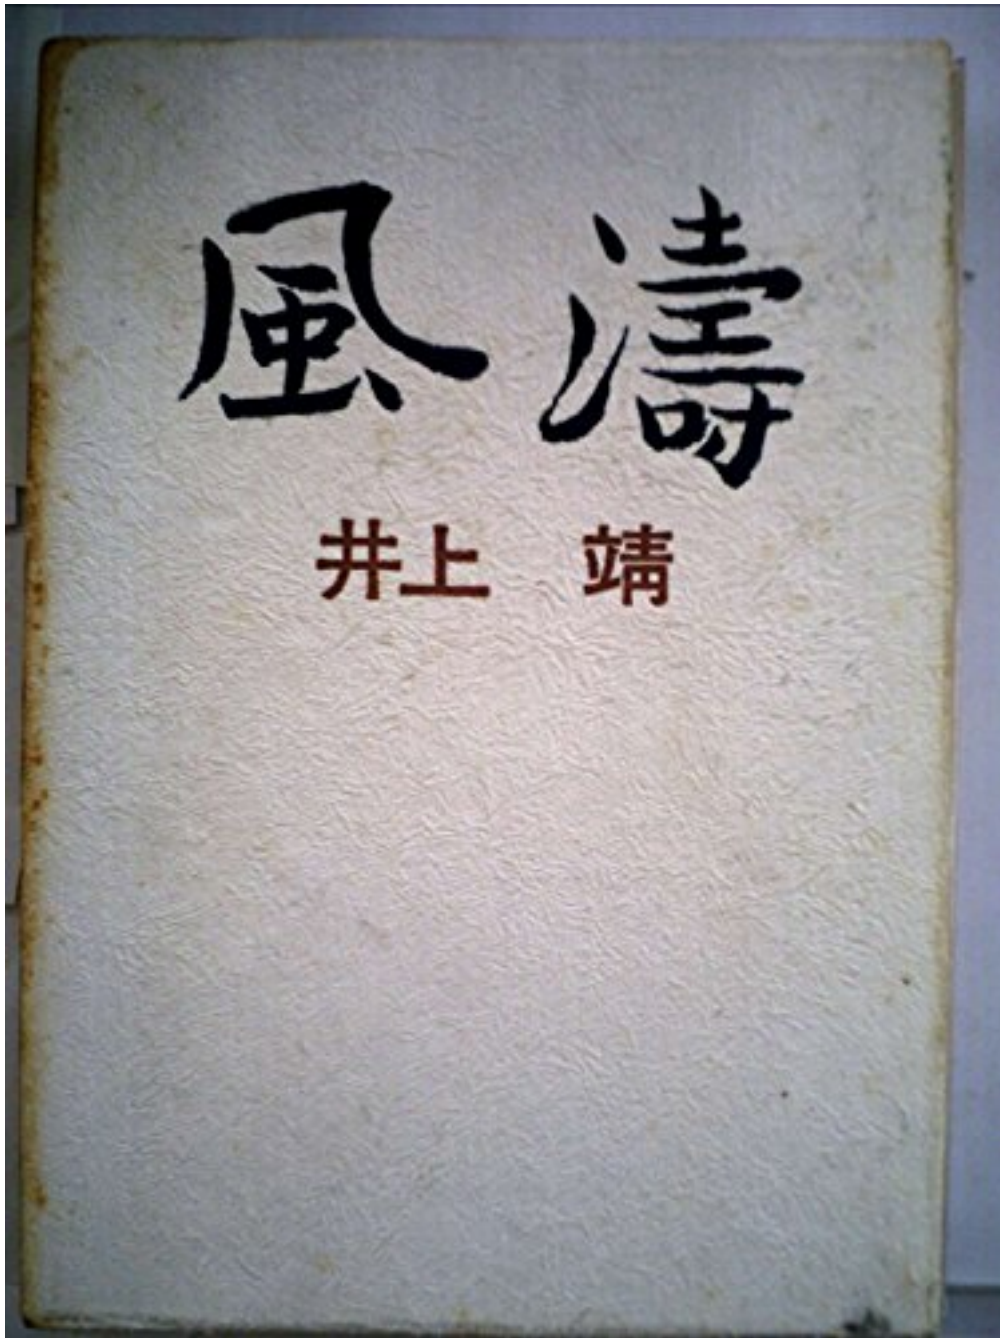 風濤
井上 靖